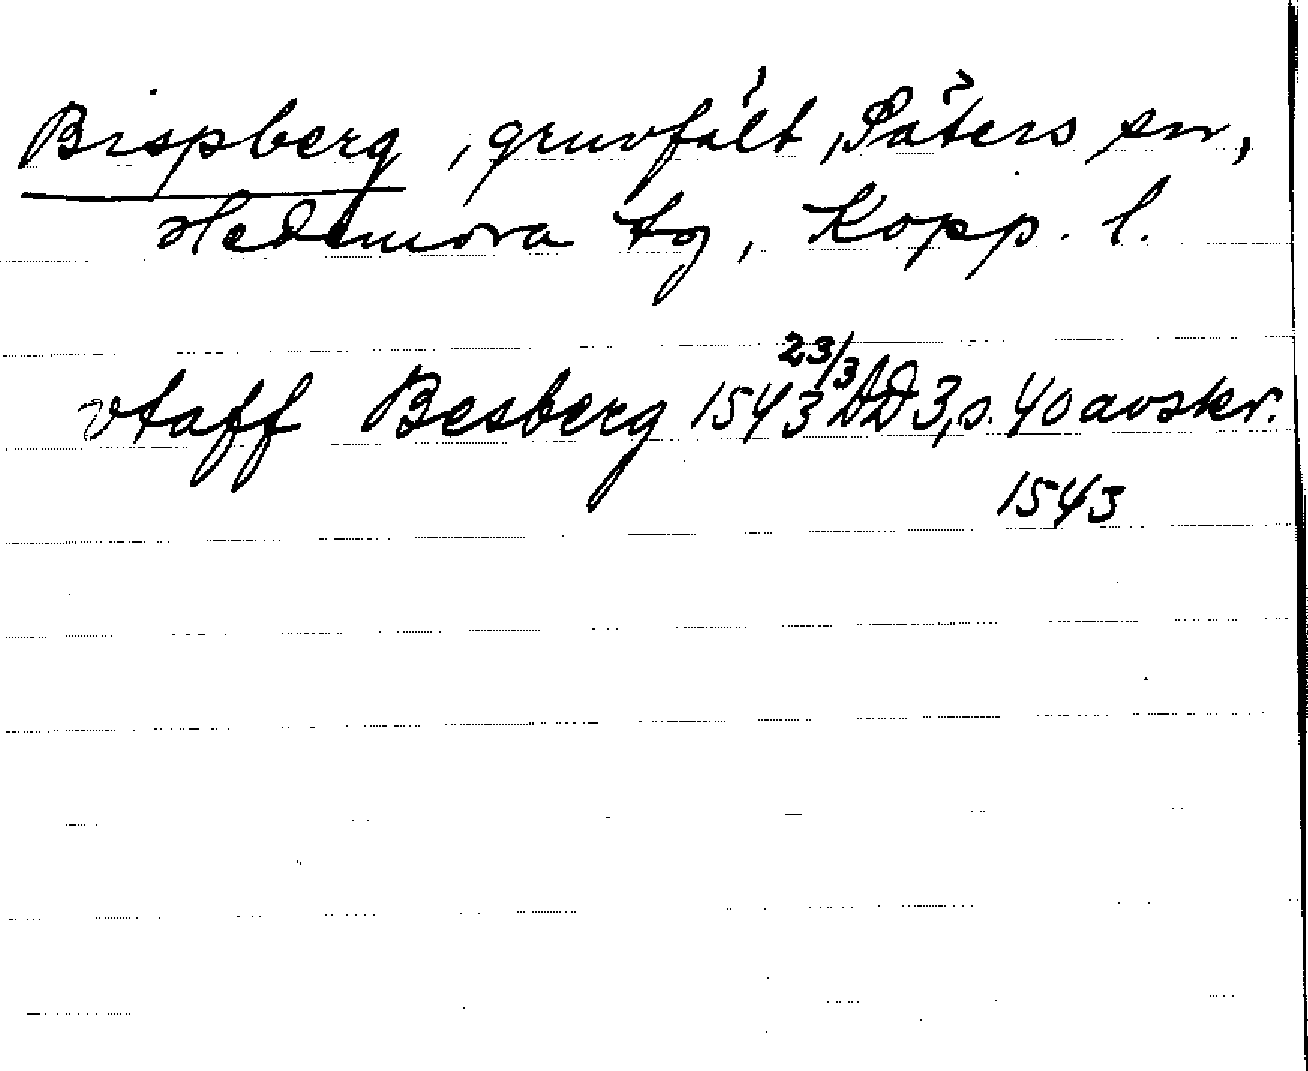 Bispberg, gruvfält, Säters sn,
Hedemora tg, Kopp. l.
vtaff Besberg 1543 23/3 DD 3, s. 40 avskr.
1543